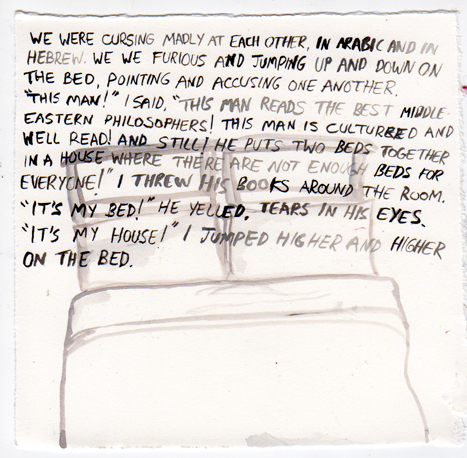 WE WERE CURSING MADLY AT EACH OTHER, IN ARABIC AND IN
HEBREW. WE WE FURIOUS AND JUMPING UP AND DOWN ON
THE BED, POINTING AND ACCUSING ONE ANOTHER.
"THIS MAN!" I SAID, "THIS MAN READS THE BEST MIDDLE-
EASTERN PHILOSOPHERS! THIS MAN IS CULTURRED AND
WELL READ! AND STILL! HE PUTS TWO BEDS TOGETHER
IN A HOUSE WHERE THERE ARE NOT ENOUGH BEDS FOR
EVERYONE!" I THREW HIS BOOKS AROUND THE ROOM.
"IT'S MY BED!" HE YELLED, TEARS IN HIS EYES.
"IT'S MY HOUSE!" I JUMPED HIGHER AND HIGHER
ON THE BED.